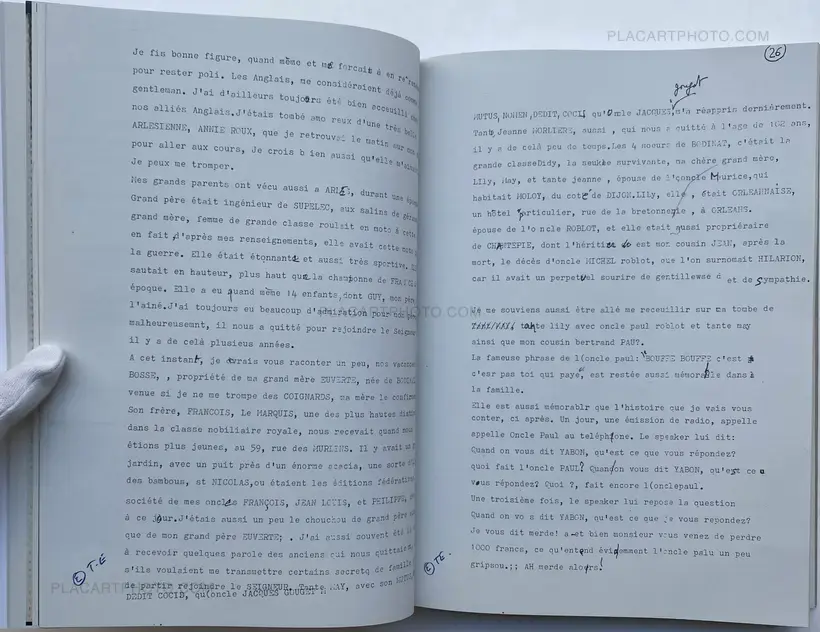 Je fis bonne figure, quand même et me forcais à en
pour rester poli. Les Anglais, me considéraient déjà
gentleman. J'ai d'ailleurs toujours été bien acceuilli
nos alliés Anglais.J'étais tombé amo reux d'une très
ARLESIENNE, ANNIE ROUX, que je retrouvai le matin sur
pour aller aux cours, Je crois b ien aussi qu'elle
Je peux me tromper.
Mes grands parents ont vécu aussi a ARLES, durant une
Grand père était ingénieur de SUPELEC, aux salins de
grand mère, femme de grande classe roulait en moto à cette
en fait d'après mes renseignements, elle avait cette
la guerre. Elle était étonnante et aussi très sportive.
sautait en hauteur, plus haut que la championne de
époque. Elle a eu quand même 14 enfants,dont GUY, mon
l'ainé.J'ai toujours eu beaucoup d'admiration pour
malheureusemnt, il nous a quitté pour rejoindre le
il y a de celà plusieurs années.
A cet instant, je vous raconter un peu, nos
BOSSE, , propriété de ma grand mère EUVERTE, née de
venue si je ne me trompe des COIGNARDS, ma mère le
Son frère, FRANCOIS, Le MARQUIS, une des plus hautes
dans la classe nobiliaire royale, nous recevait quand
étions plus jeunes, au 59, rue des MURLINS. Il y avait
jardin, avec un puit près d'un énorme acacia, une sorte
des bambous, et NICOLAS,ou étaient les éditions
société de mes oncles FRANÇOIS, JEAN LOUIS, et PHILIPPE,
à ce jour.J'étais aussi un peu le chouchou de grand père
que de mon grand père EUVERTE; . J'ai aussi souvent été
à recevoir quelques parole des anciens qui nous
s'ils voulaient me transmettre certains secretq de
de partir rejoindre le SEIGNEUR. Tante MAY, avec son
DEDIT COCIS, qu(oncle JACQUES GOUGET
© T.E
PLACARTPHOTO.COM
26
gouget
MUTUS, NOMEN,DEDIT,COCIS qu'Oncle JACQUES, m'a réappris dernièrement.
Tante Jeanne MORLIERE, aussi , qui nous a quitté à l'age de 102 ans,
il y a de celà peu de temps.Les 4 soeurs de BODINAT, c'était la
grande classeDidy, la seule survivante, ma chère grand mère,
LIly, May, et tante jeanne , épouse de l'oncle Maurice,qui
habitait MOLOY, du coté de DIJON.LIly, elle , était ORLEANNAISE,
un hôtel particulier, rue de la bretonnerie , à ORLEANS.
épouse de l'o ncle ROBLOT, et elle etait aussi propriéraire
de CHANTEPIE, dont l'héritier est mon cousin JEAN, après la
mort, le décès d'oncle MICHEL roblot, que l'on surnomait HILARION,
car il avait un perpetuel sourire de gentillewse d et de sympathie.
Je me souviens aussi être allé me receuillir sur ma tombe de
tante lily avec oncle paul roblot et tante may
ainsi que mon cousin bertrand PAU?.
La fameuse phrase de l(oncle paul: "BOUFFE BOUFFE c'est
c'esr pas toi qui paye", est restée aussi mémorable dans
la famille.
Elle est aussi mémorablr que l'histoire que je vais vous
conter, ci après. Un jour, une émission de radio, appelle
appelle Oncle Paul au teléphone. Le speaker lui dit:
Quand on vous dit YABON, qu'est ce que vous répondez?
quoi fait l'oncle PAUL? Quand on vous dit YABON, qu'est ce
vous répondez? Quoi ?, fait encore l(onclepaul.
Une troisième fois, le speaker lui repose la question
Quand on vo s dit YABON, qu'est ce que je vous repondez?
Je vous dit merde! a et bien monsieur vous venez de perdre
1000 francs, ce qu'entend évidemment l'oncle palu un peu
gripsou.;: AH merde alors!
© TE.
PLACARTPHOTO.COM
PLACARTPHOTO.COM